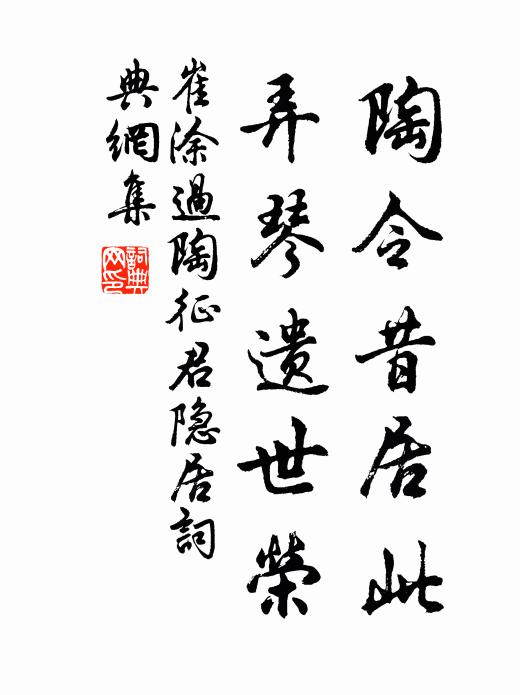 陶令昔居此
弄琴遗世榮
崔涂過陶征君隐居詞
典網集
詞典
网印